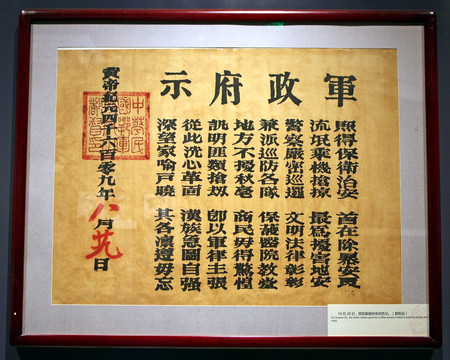 軍政府示
照得保衛治安 首在除暴安良
流氓乘機搶掠 最爲擾害地方
警察嚴密巡邏 文明法律彰彰
兼派巡防各隊 保護醫院教堂
地方不擾秋毫 商民毋得驚惶
訊明匪類搶刼 即以軍律主張
從此洗心革面 漢族急圖自強
深望家喻戶曉 其各凜遵毋忘
黃帝紀元四千六百零九年八月廿九日
中華民國鄂軍都督印